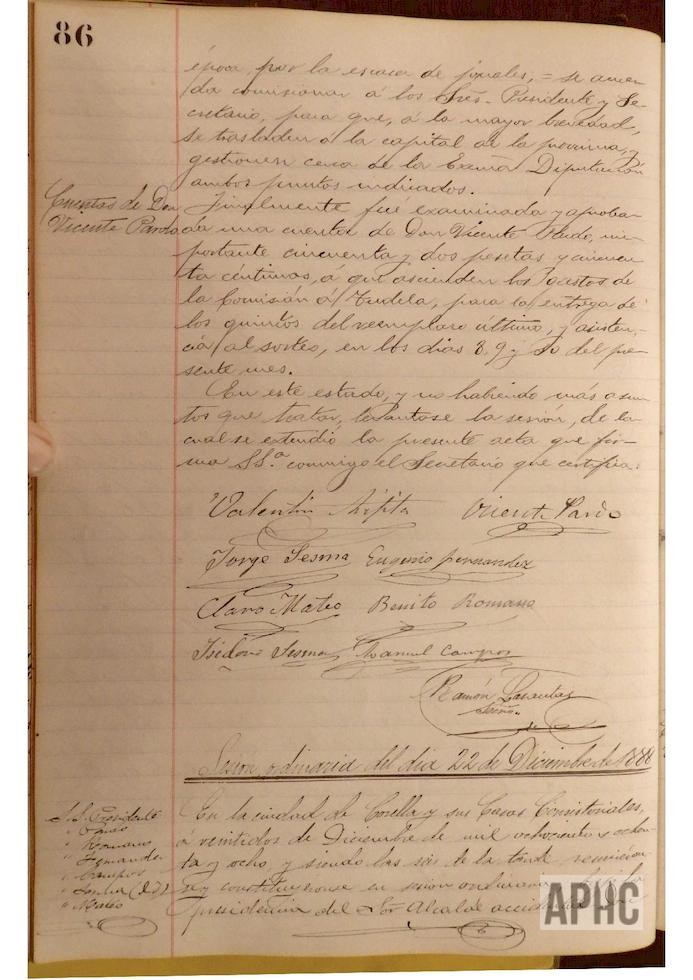 86
época, por la escasez de jornales, = se acuer-
da comisionar á los Sres. Presidente y Se-
cretario, para que, á la mayor brevedad,
se trasladen á la capital de la provincia, y
gestionen cerca de la Exma Diputación
ambos puntos indicados.
Cuentas de Don
Vicente Pardo
Finalmente fué examinada y aproba-
da una cuenta de Don Vicente Pardo, im-
portante cincuenta y dos pesetas y cincuen-
ta céntimos, á que ascienden los gastos de
la Comisión á Tudela, para la entrega de
los quintos del reemplazo último, y asisten-
cia al sorteo, en los dias 8, 9 y 10 del pre-
sente mes.
En este estado, y no habiendo más asun-
tos que tratar, levantose la sesión, de la
cual se extendió la presente acta que fir-
ma SSª conmigo el Secretario que certifica.
Valentin Vicente Pardo
Jorge Sesma Eugenio Fernandez
Claro Mateo Benito Romano
Isidoro Sesma Manuel Campos
Ramón
Srio.
Sesión ordinaria del dia 22 de Diciembre de 1888
S.S. Presidente
" Pardo
" Romano
" Fernandez
" Campos
" Sesma (D. J.)
" Mateo
En la ciudad de Corella y sus Casas Consistoriales,
á veintidos de Diciembre de mil ochocientos ochen-
ta y ocho y siendo las seis de la tarde reunieron
se y constituyeronse en sesión ordinaria bajo la
presidencia del Sor Alcalde accidental Don
APHC